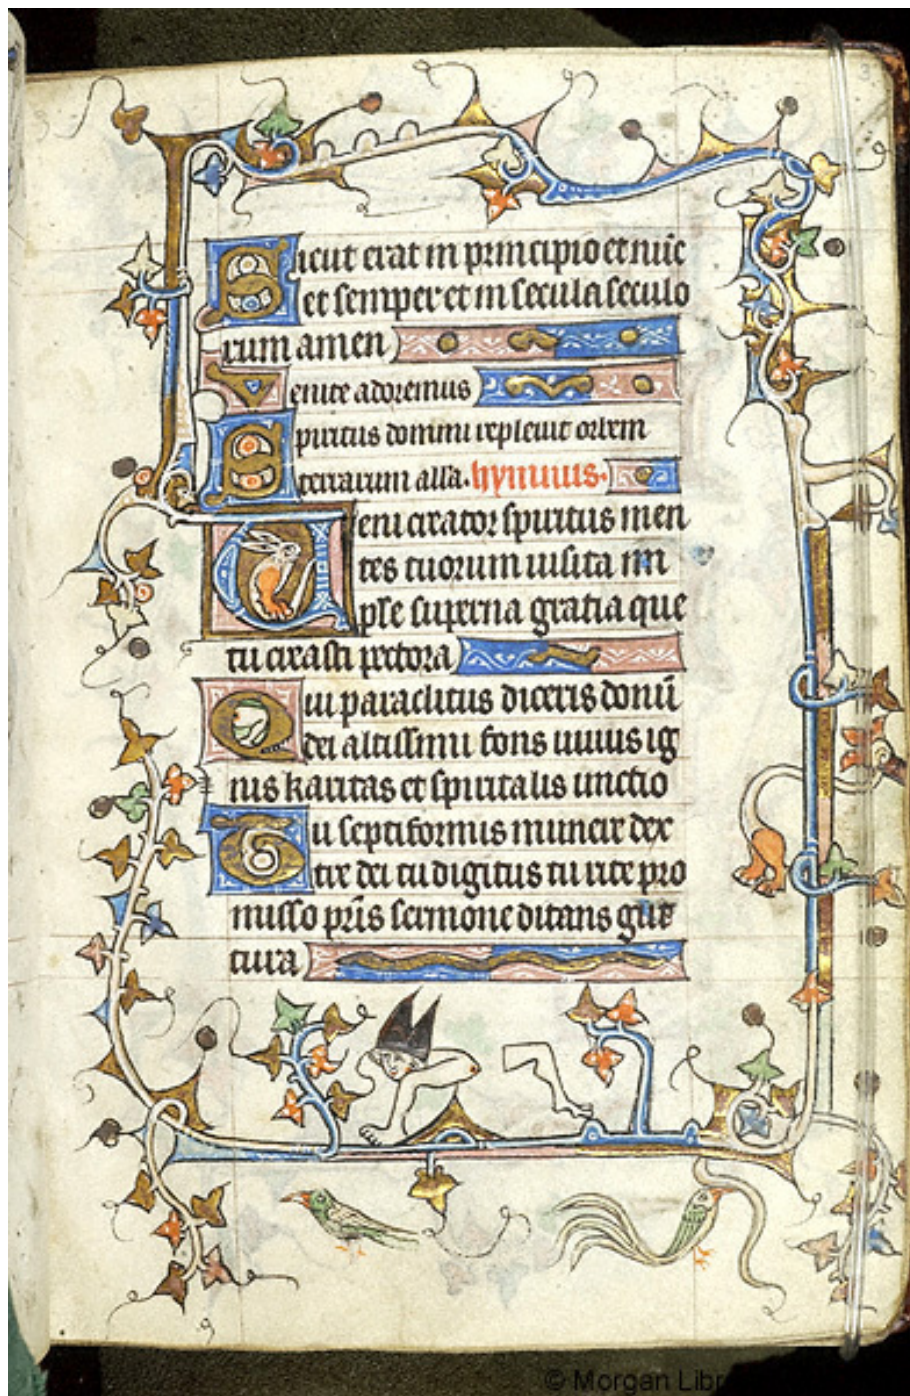 Sicut erat in principio et nūc
et semper et in secula seculo
rum amen
Uenite adoremus
Spiritus domini repleuit orbem
terrarum alla. hymnus.
Ueni creator spiritus men
tes tuorum uisita im
ple superna gratia que
tu creasti pectora
Qui paraclitus diceris donū
dei altissimi fons uiuus ig
nis karitas et spiritalis unctio
Tu septiformis munere dex
tre dei tu digitus tu rite pro
misso pr̄is sermone ditans gut
tura
© Morgan Libr